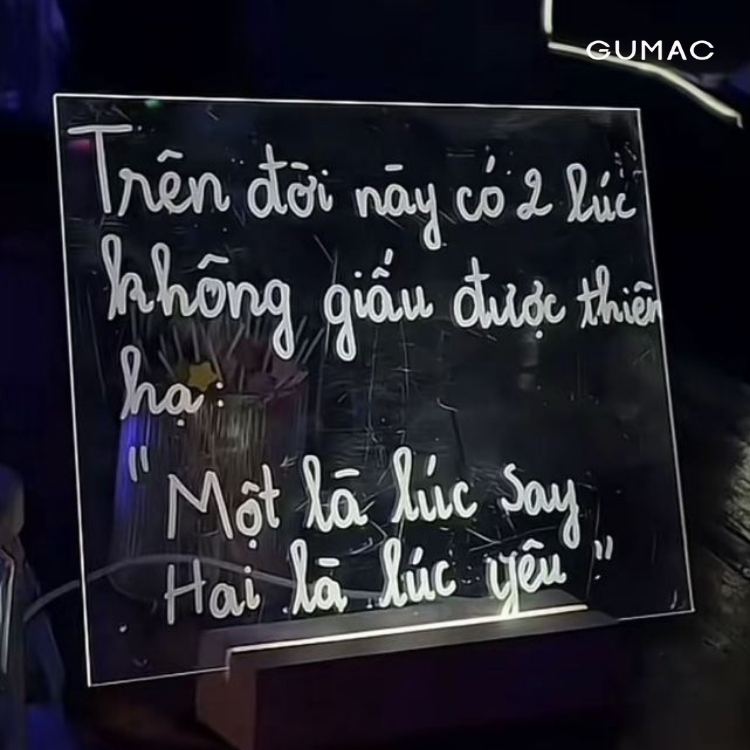 GUMAC
Trên đời này có 2 lúc
không giấu được thiên
hạ:
"Một là lúc say
Hai là lúc yêu"